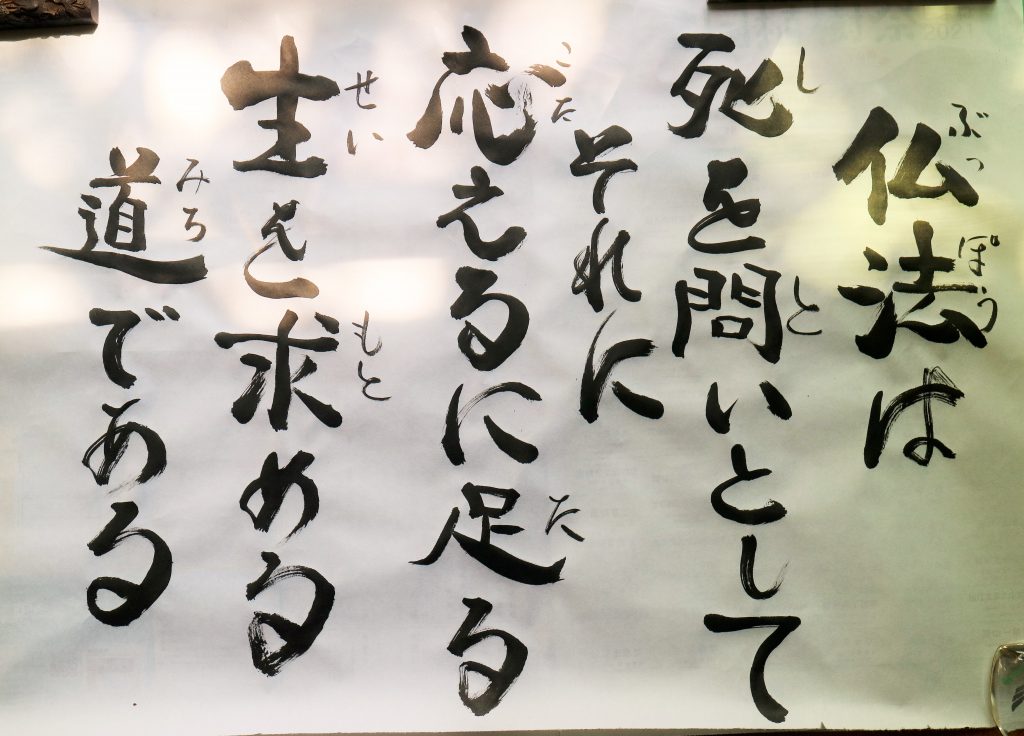 仏法は
死を問いとして
それに
応えるに足る
生を求める
道である
ぶっぽう
し
と
こた
た
せい
もと
みち